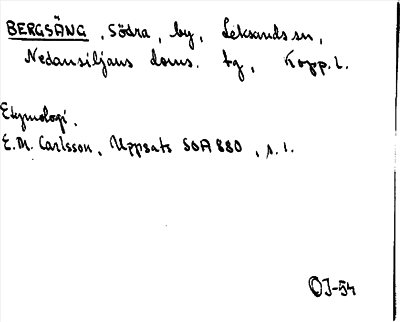 BERGSÄNG, Södra, by, Leksands sn,
Nedansiljans doms. tg, Kopp. l.
Etymologi.
E.M. Carlsson, Uppsats SOA 880, s. 1.
OJ-54